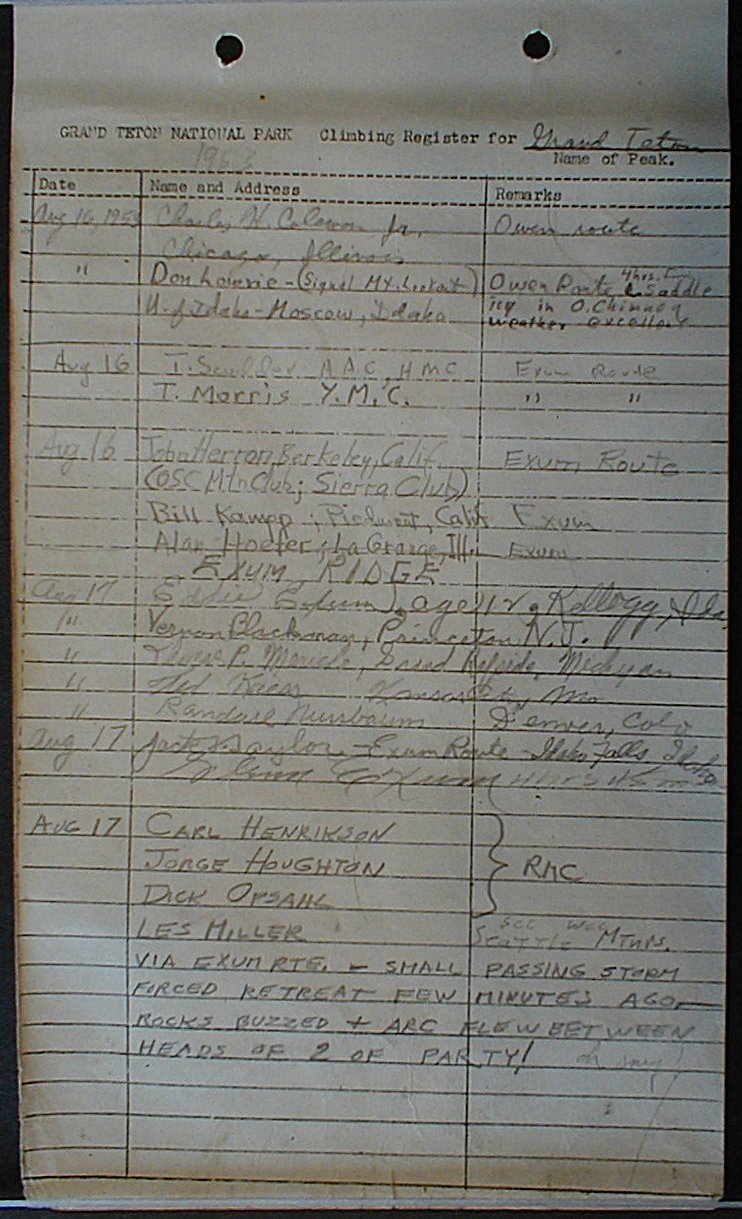 GRAND TETON NATIONAL PARK Climbing Register for Grand Teton
1953 Name of Peak.
Date Name and Address Remarks
Aug 16, 1953 Charles H. Jr. Owen route
Chicago, Illinois
" Don Lowrie - (Signal Mt. Lookout) Owen Route, 4 hrs. Saddle
U. of Idaho - Moscow, Idaho icy in O. Chimney
weather excellent
Aug 16 T. AAC, HMC Exum Route
T. Morris Y.M.C. " "
Aug 16 John Herron, Berkeley, Calif. Exum Route
(OSC Mtn Club; Sierra Club)
Bill Kampp; Piedmont, Calif Exum
Alan Hoefer; La Grange, Ill Exum
EXUM RIDGE
Aug 17 Eddie Exum, age 12, Kellogg, Ida.
" Vernon Blackman, Princeton, N.J.
" P. Michigan
" Ted Kansas City, Mo
" Randall Nussbaum Denver, Colo
Aug 17 Jack Naylor - Exum Route - Idaho Falls, Idaho
Glenn Exum 4 hrs 45 m
AUG 17 CARL HENRIKSON
JORGE HOUGHTON } RMC
DICK OPSAHL
LES MILLER Seattle Mtnrs.
VIA EXUM RTE. - SMALL PASSING STORM
FORCED RETREAT FEW MINUTES AGO -
ROCKS BUZZED + ARC FLEW BETWEEN
HEADS OF 2 OF PARTY! oh my!